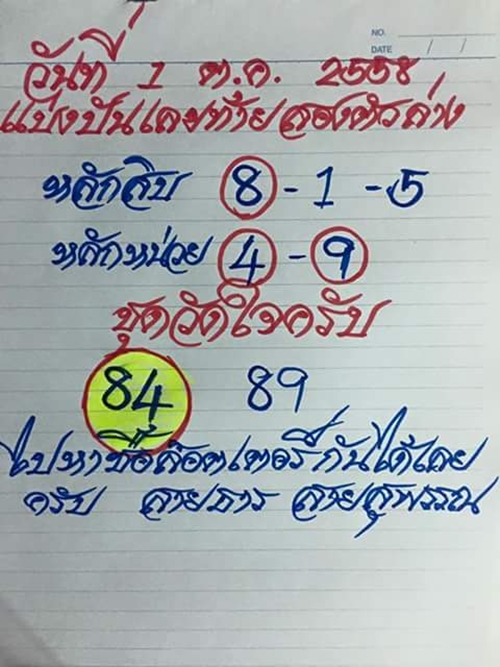 NO.
DATE / /
วันที่ 1 ต.ค. 2558
แบ่งปันเลขท้ายสองตัวล่าง
หลักสิบ 8 - 1 - 5
หลักหน่วย 4 - 9
ชุดวัดใจครับ
84 89
ไปหาซื้อล๊อตเตอรี่กันได้เลย
ครับ สายธาร สายสุพรรณ